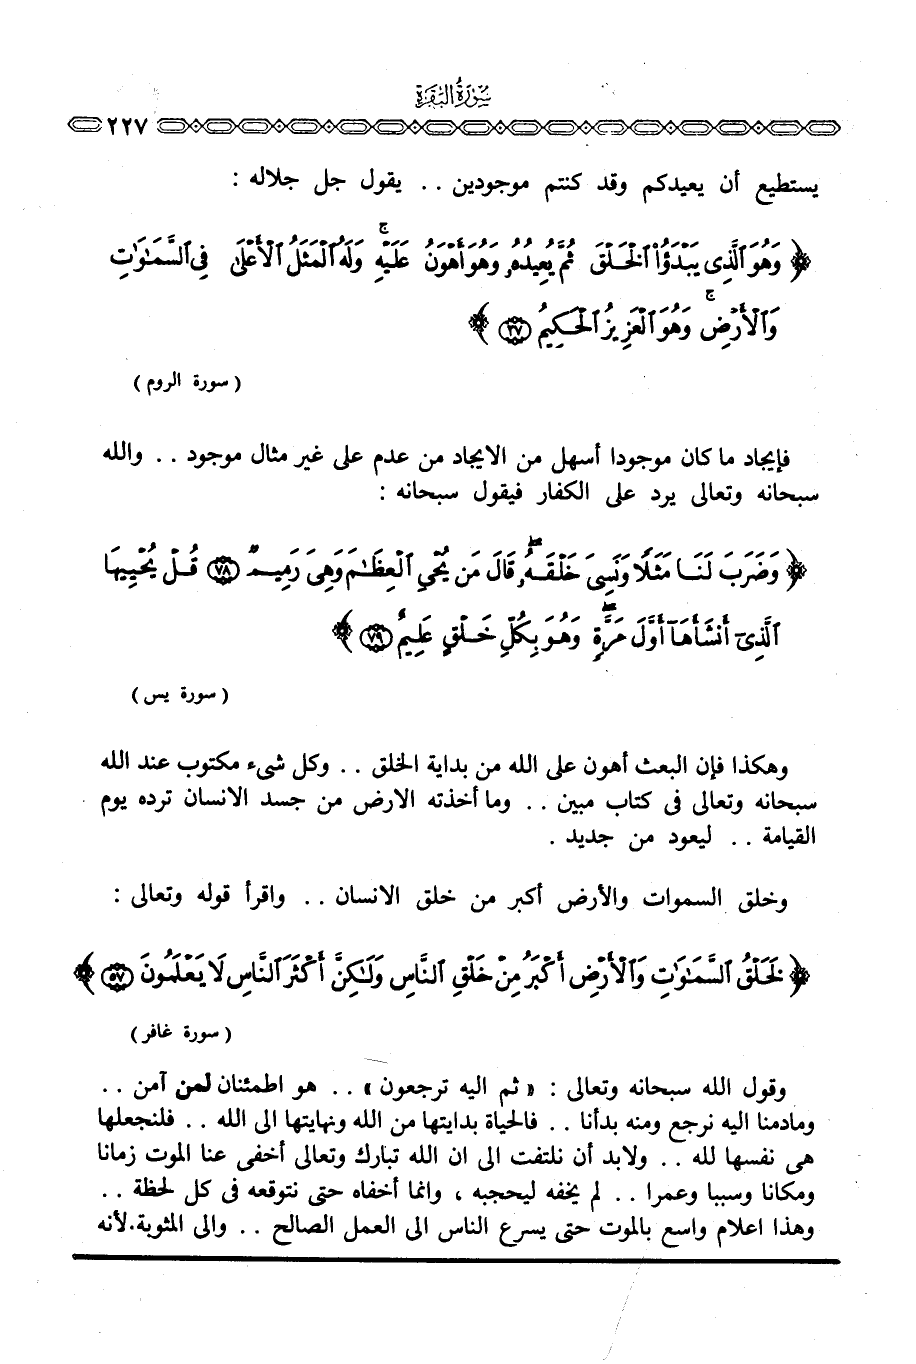 سُورَةُ البَقَرَةِ
٢٢٧
يستطيع أن يعيدكم وقد كنتم موجودين .. يقول جل جلاله :
﴿ وَهُوَ ٱلَّذِى يَبْدَؤُا۟ ٱلْخَلْقَ ثُمَّ يُعِيدُهُۥ وَهُوَ أَهْوَنُ عَلَيْهِ ۚ وَلَهُ ٱلْمَثَلُ ٱلْأَعْلَىٰ فِى ٱلسَّمَٰوَٰتِ
وَٱلْأَرْضِ ۚ وَهُوَ ٱلْعَزِيزُ ٱلْحَكِيمُ ٢٧ ﴾
( سورة الروم )
فإيجاد ما كان موجودا أسهل من الايجاد من عدم على غير مثال موجود .. والله
سبحانه وتعالى يرد على الكفار فيقول سبحانه :
﴿ وَضَرَبَ لَنَا مَثَلًا وَنَسِىَ خَلْقَهُۥ ۖ قَالَ مَن يُحْىِ ٱلْعِظَٰمَ وَهِىَ رَمِيمٌ ٧٨ قُلْ يُحْيِيهَا
ٱلَّذِىٓ أَنشَأَهَآ أَوَّلَ مَرَّةٍ ۖ وَهُوَ بِكُلِّ خَلْقٍ عَلِيمٌ ٧٩ ﴾
( سورة يس )
وهكذا فإن البعث أهون على الله من بداية الخلق .. وكل شىء مكتوب عند الله
سبحانه وتعالى فى كتاب مبين .. وما أخذته الارض من جسد الانسان ترده يوم
القيامة .. ليعود من جديد .
وخلق السموات والأرض أكبر من خلق الانسان .. واقرأ قوله وتعالى :
﴿ لَخَلْقُ ٱلسَّمَٰوَٰتِ وَٱلْأَرْضِ أَكْبَرُ مِنْ خَلْقِ ٱلنَّاسِ وَلَٰكِنَّ أَكْثَرَ ٱلنَّاسِ لَا يَعْلَمُونَ ٥٧ ﴾
( سورة غافر )
وقول الله سبحانه وتعالى : « ثم اليه ترجعون » .. هو اطمئنان لمن آمن ..
ومادمنا اليه نرجع ومنه بدأنا .. فالحياة بدايتها من الله ونهايتها الى الله .. فلنجعلها
هى نفسها لله .. ولابد أن نلتفت الى ان الله تبارك وتعالى أخفى عنا الموت زمانا
ومكانا وسببا وعمرا .. لم يخفه ليحجبه ، وانما أخفاه حتى نتوقعه فى كل لحظة ..
وهذا اعلام واسع بالموت حتى يسرع الناس الى العمل الصالح .. والى المثوبة.لأنه